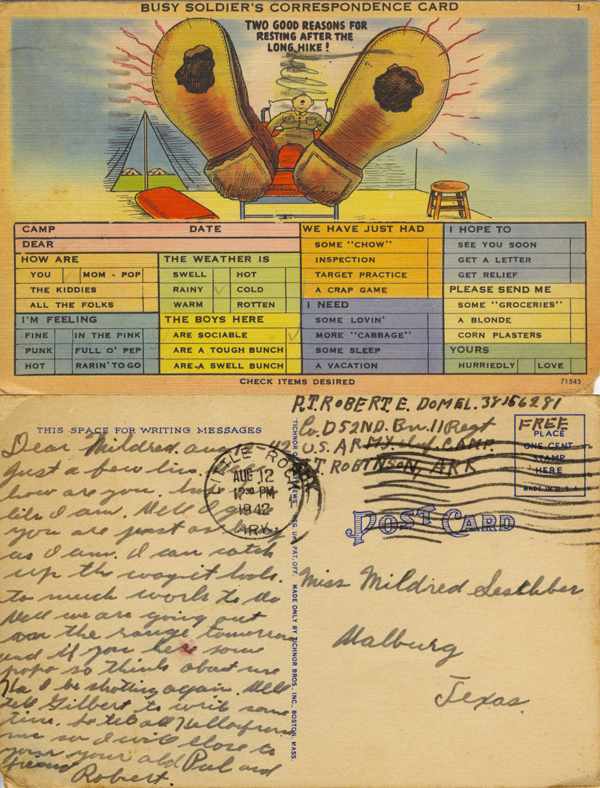 BUSY SOLDIER'S CORRESPONDENCE CARD 1
TWO GOOD REASONS FOR
RESTING AFTER THE
LONG HIKE!
CAMP DATE
DEAR
HOW ARE
YOU MOM - POP
THE KIDDIES
ALL THE FOLKS
I'M FEELING
FINE IN THE PINK
PUNK FULL O' PEP
HOT RARIN' TO GO
THE WEATHER IS
SWELL HOT
RAINY COLD
WARM ROTTEN
THE BOYS HERE
ARE SOCIABLE
ARE A TOUGH BUNCH
ARE A SWELL BUNCH
WE HAVE JUST HAD
SOME "CHOW"
INSPECTION
TARGET PRACTICE
A CRAP GAME
I NEED
SOME LOVIN'
MORE "CABBAGE"
SOME SLEEP
A VACATION
I HOPE TO
SEE YOU SOON
GET A LETTER
GET RELIEF
PLEASE SEND ME
SOME "GROCERIES"
A BLONDE
CORN PLASTERS
YOURS
HURRIEDLY LOVE
CHECK ITEMS DESIRED 71343
THIS SPACE FOR WRITING MESSAGES
Dear Mildred. and
Just a few lin
how are you.
like I am. Well I
you are just as busy
as I am. I can catch
up the way it looks.
to much work to do
Well we are going out
on the range tomorrow
and if you hear some
pops so think about me
Ha I be shoting again. Well
tell Gilbert to write some
time. So tell all Hallo from
me so I will close to
your old Pal and
friend
Robert.
LITTLE ROCK
AUG 12
12 30 PM
1942
ARK.
TICHNOR QUALITY VIEWS, REG. U.S. PAT. OFF. MADE ONLY BY TICHNOR BROS. INC., BOSTON, MASS.
P.T. ROBERT. E. DOMEL. 38156281
Co. D 52ND. Bn. 11 Regt
U.S. ARMY CAMP.
T ROBINSON, ARK
FREE
PLACE
ONE CENT
STAMP
HERE
MADE IN U.S.A.
POST CARD
Miss Mildred
Walburg
Texas.